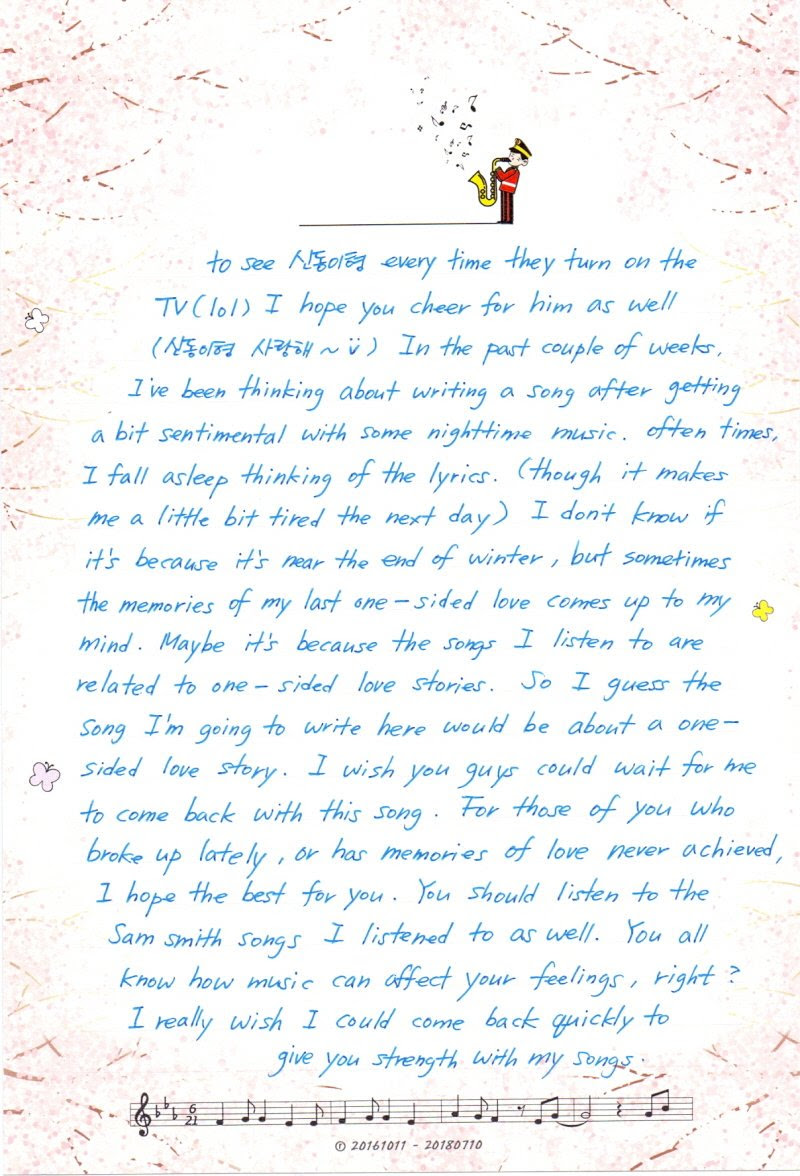 to see 신동이형 every time they turn on the
TV(lol) I hope you cheer for him as well
(신동이형 사랑해~ü) In the past couple of weeks,
I've been thinking about writing a song after getting
a bit sentimental with some nighttime music. often times,
I fall asleep thinking of the lyrics. (though it makes
me a little bit tired the next day) I don't know if
it's because it's near the end of winter, but sometimes
the memories of my last one-sided love comes up to my
mind. Maybe it's because the songs I listen to are
related to one-sided love stories. So I guess the
song I'm going to write here would be about a one-
sided love story. I wish you guys could wait for me
to come back with this song. For those of you who
broke up lately, or has memories of love never achieved,
I hope the best for you. You should listen to the
Sam smith songs I listened to as well. You all
know how music can affect your feelings, right?
I really wish I could come back quickly to
give you strength with my songs.
6
21
ⓡ 20161011 - 20180710